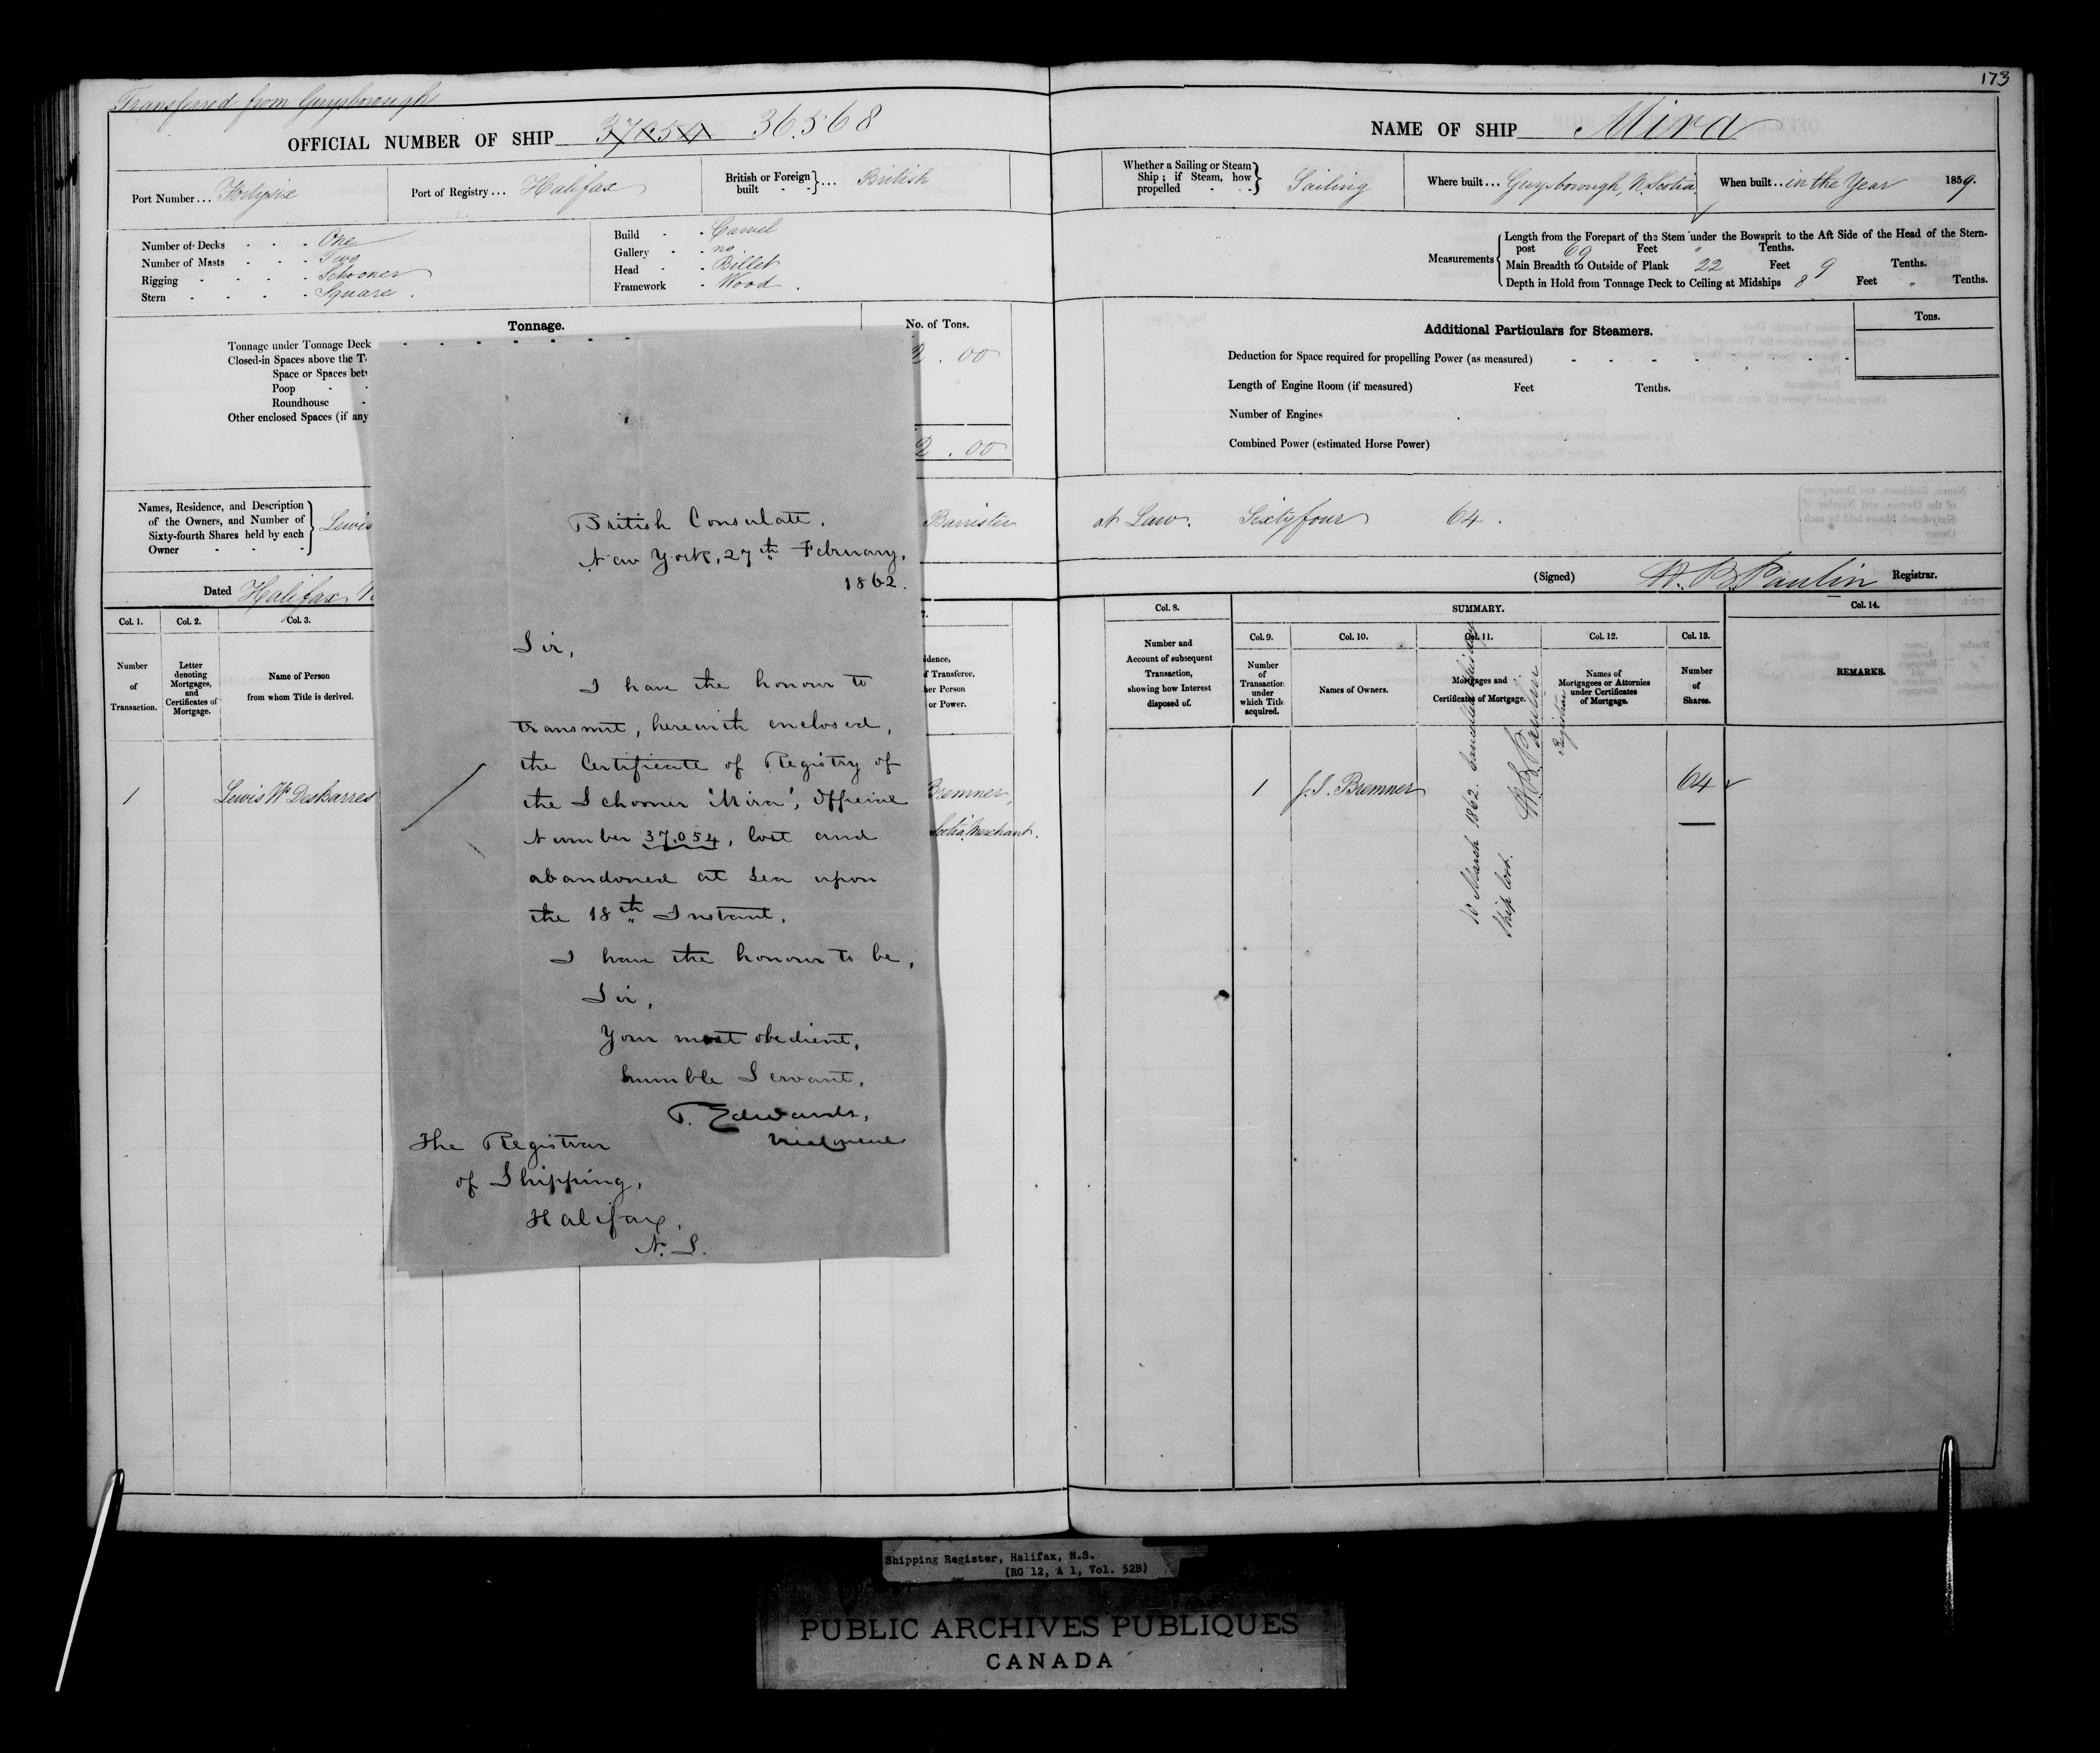 173
Transferred from Guysborough
OFFICIAL NUMBER OF SHIP 37054 36.568
NAME OF SHIP Mira
Port Number... Fortysix
Port of Registry... Halifax
British or Foreign built - - }... British
Whether a Sailing or Steam Ship; if Steam, how propelled - - } Sailing
Where built... Guysborough, N. Scotia
When built.. in the Year 1859.
Number of Decks - - - One
Number of Masts - - - Two
Rigging - - - - Schooner
Stern - - - - Square.
Build - - Carvel
Gallery - - no
Head - - Billet
Framework - Wood.
Measurements
Length from the Forepart of the Stem under the Bowsprit to the Aft Side of the Head of the Stern-
post 69 Feet " Tenths.
Main Breadth to Outside of Plank 22 Feet 9 Tenths.
Depth in Hold from Tonnage Deck to Ceiling at Midships 8 Feet " Tenths.
Tonnage.
No. of Tons.
Tonnage under Tonnage Deck
Closed-in Spaces above the T
Space or Spaces bet
Poop -
Roundhouse -
Other enclosed Spaces (if any
2.00
2.00
Additional Particulars for Steamers.
Tons.
Deduction for Space required for propelling Power (as measured) - - - - - -
Length of Engine Room (if measured) Feet Tenths.
Number of Engines
Combined Power (estimated Horse Power)
Names, Residence, and Description
of the Owners, and Number of
Sixty-fourth Shares held by each
Owner - - -
Lewis
Barrister at Law. Sixtyfour 64.
Dated Halifax
(Signed) H. B. Paulin Registrar.
Col. 1.
Number
of
Transaction.
Col. 2.
Letter
denoting
Mortgages,
and
Certificates of
Mortgage.
Col. 3.
Name of Person
from whom Title is derived.
7.
dence,
f Transferee,
her Person
or Power.
Col. 8.
Number and
Account of subsequent
Transaction,
showing how Interest
disposed of.
SUMMARY.
Col. 9.
Number
of
Transaction
under
which Title
acquired.
Col. 10.
Names of Owners.
Col. 11.
Mortgages and
Certificates of Mortgage.
Col. 12.
Names of
Mortgagees or Attornies
under Certificates
of Mortgage.
Col. 13.
Number
of
Shares.
Col. 14.
REMARKS.
1 Lewis W DesBarres
Bremner,
Scotia, Merchant.
1 J. S. Bremner 64
10 March 1862. Cancelled this day
Ship lost.
H. B. Paulin
Registrar
British Consulate,
New York, 27th February,
1862.
Sir,
I have the honour to
transmit, herewith enclosed,
the Certificate of Registry of
the Schooner 'Mira', Official
Number 37.054, lost and
abandoned at Sea upon
the 18th Instant.
I have the honour to be,
Sir,
Your most obedient,
humble Servant,
P. Edwards,
The Registrar
of Shipping,
Halifax,
N. S.
Shipping Register, Halifax, N.S.
(RG 12, A 1, Vol. 52B)
PUBLIC ARCHIVES PUBLIQUES
CANADA